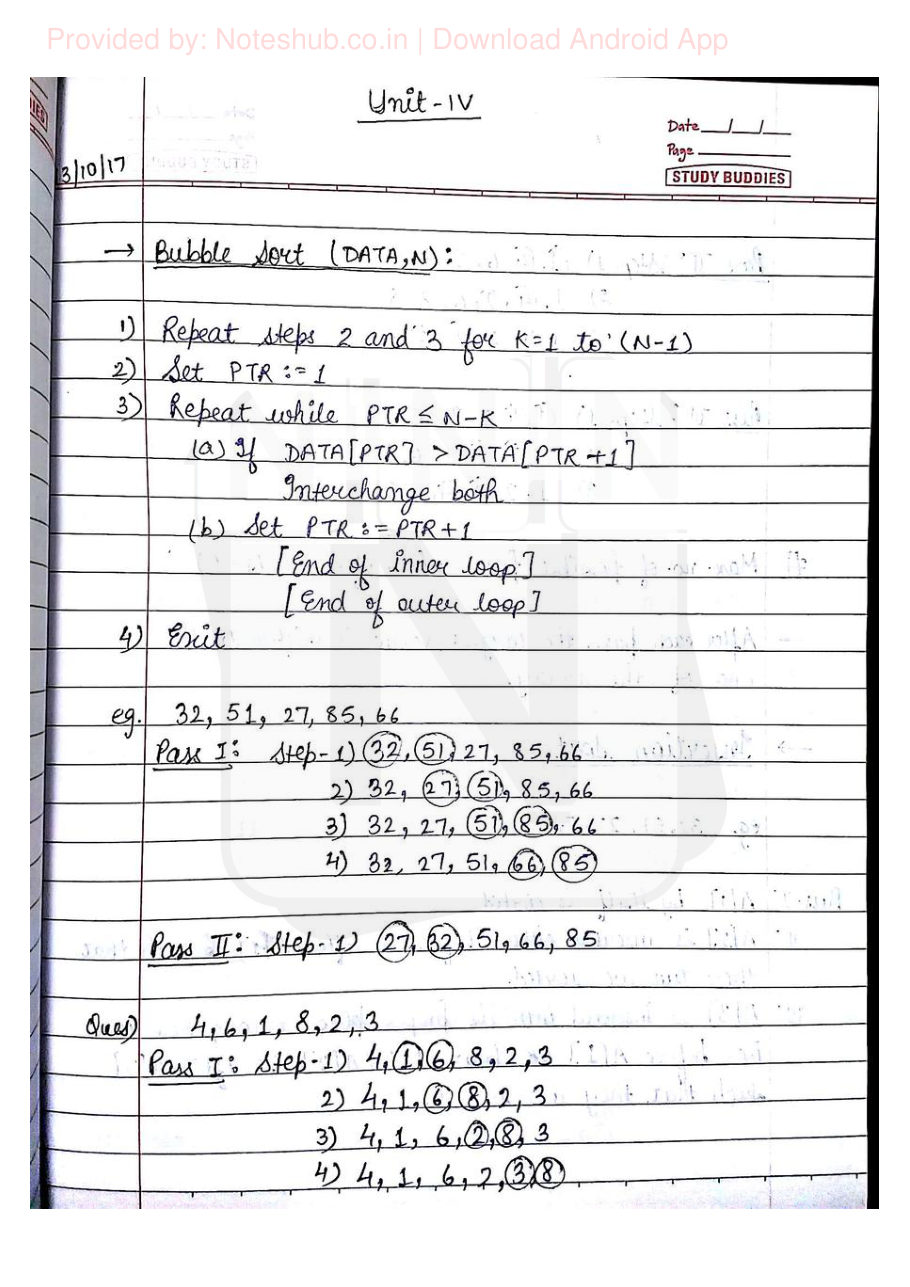 Provided by: Noteshub.co.in | Download Android App
Unit-IV
Date __/__/__
Page
STUDY BUDDIES
3/10/17
→ Bubble Sort (DATA,N):
1) Repeat steps 2 and 3 for K=1 to (N-1)
2) Set PTR := 1
3) Repeat while PTR ≤ N-K
(a) If DATA[PTR] > DATA[PTR+1]
Interchange both
(b) Set PTR := PTR+1
[End of inner loop]
[End of outer loop]
4) Exit
eg. 32, 51, 27, 85, 66
Pass I: Step-1) 32, 51, 27, 85, 66
2) 32, 27, 51, 85, 66
3) 32, 27, 51, 85, 66
4) 32, 27, 51, 66, 85
Pass II: Step-1) 27, 32, 51, 66, 85
Ques) 4, 6, 1, 8, 2, 3
Pass I: Step-1) 4, 1, 6, 8, 2, 3
2) 4, 1, 6, 8, 2, 3
3) 4, 1, 6, 2, 8, 3
4) 4, 1, 6, 2, 3, 8